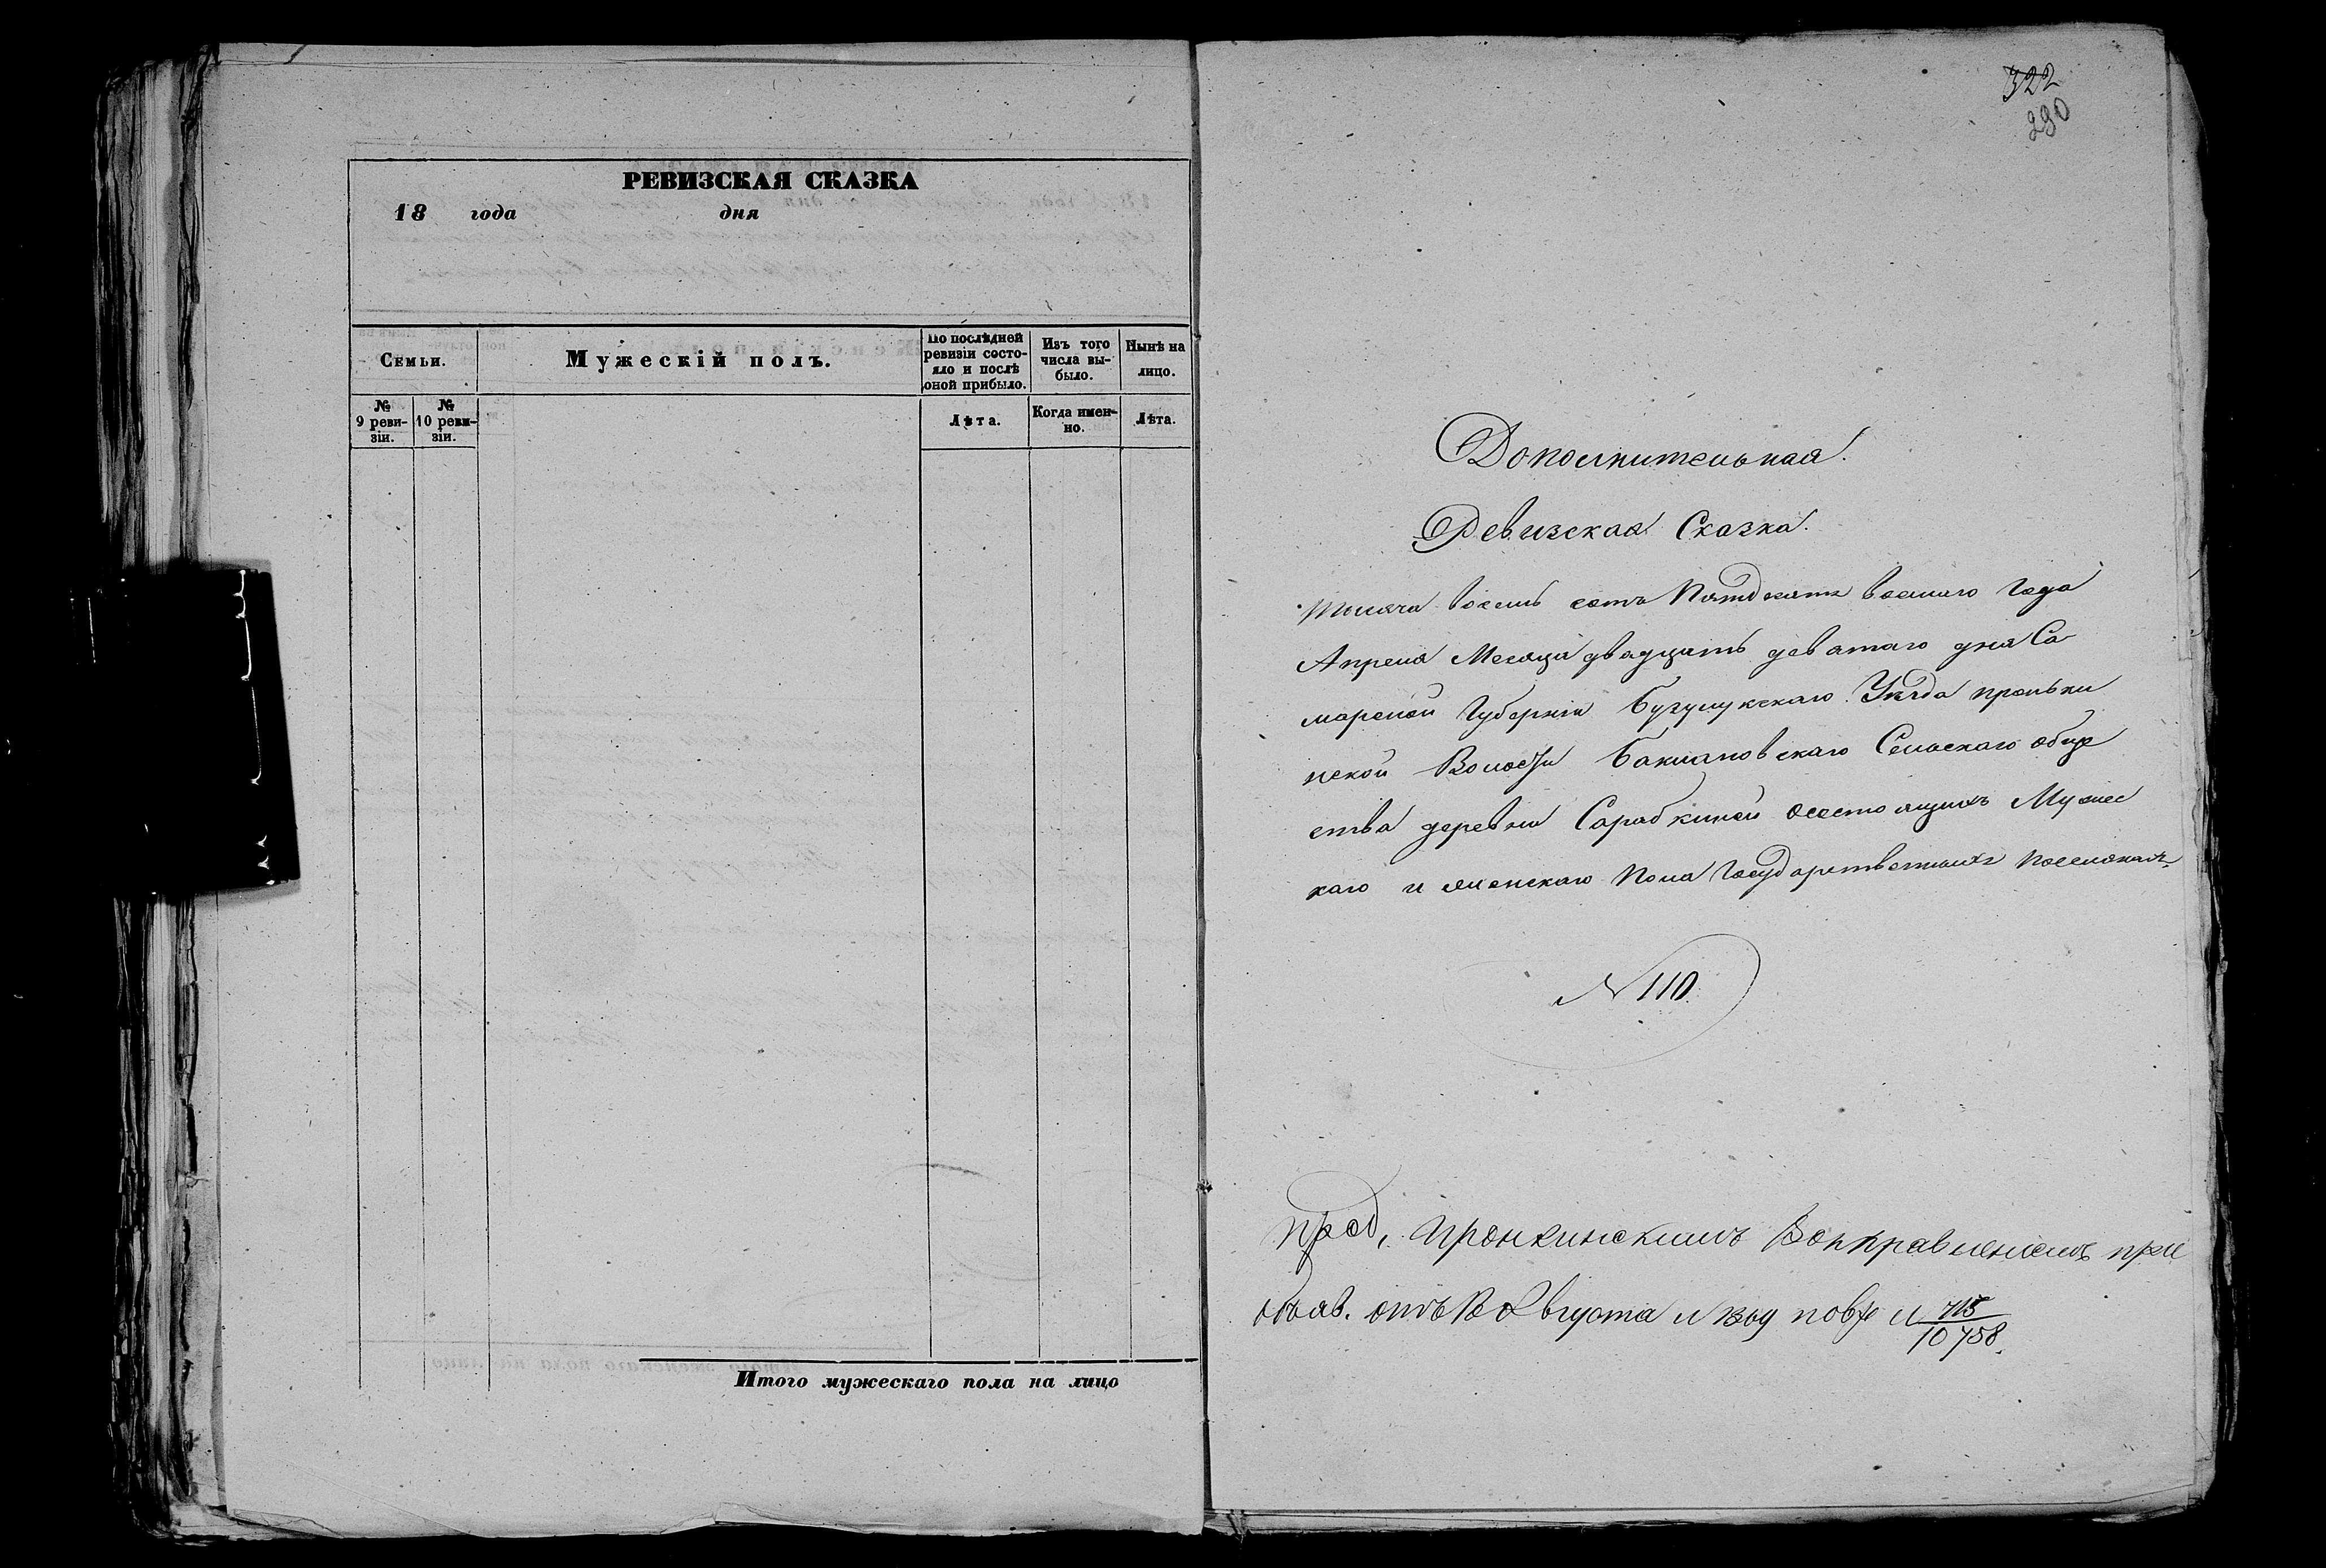 РЕВИЗСКАЯ СКАЗКА
18 года дня
Семьи.
Мужескій полъ.
По послѣдней ревизіи состо-
яло и послѣ
оной прибыло.
Изъ того
числа вы-
было.
Нынѣ на
лицо.
№
9 реви-
зіи.
№
10 реви-
зіи.
Лѣта.
Когда имен-
но.
Лѣта.
Итого мужескаго пола на лицо
322
290
Дополнительная.
Ревизская Сказка.
Тысяча восемь сотъ Пятдесятъ восмаго Года
Апреля Месяца двадцать девятаго дня Са
марской Губерніи Бугурускаго Уѣзда пронькин
ской Волости Баклановскаго Сельскаго обще
ства деревни Сарабкиной состоящихъ Мужес
каго и женскаго Пола Государственныхъ Поселянахъ
№ 110
пред. Пронкинскимъ Волправленіемъ при
объяв. отъ Августа
10758